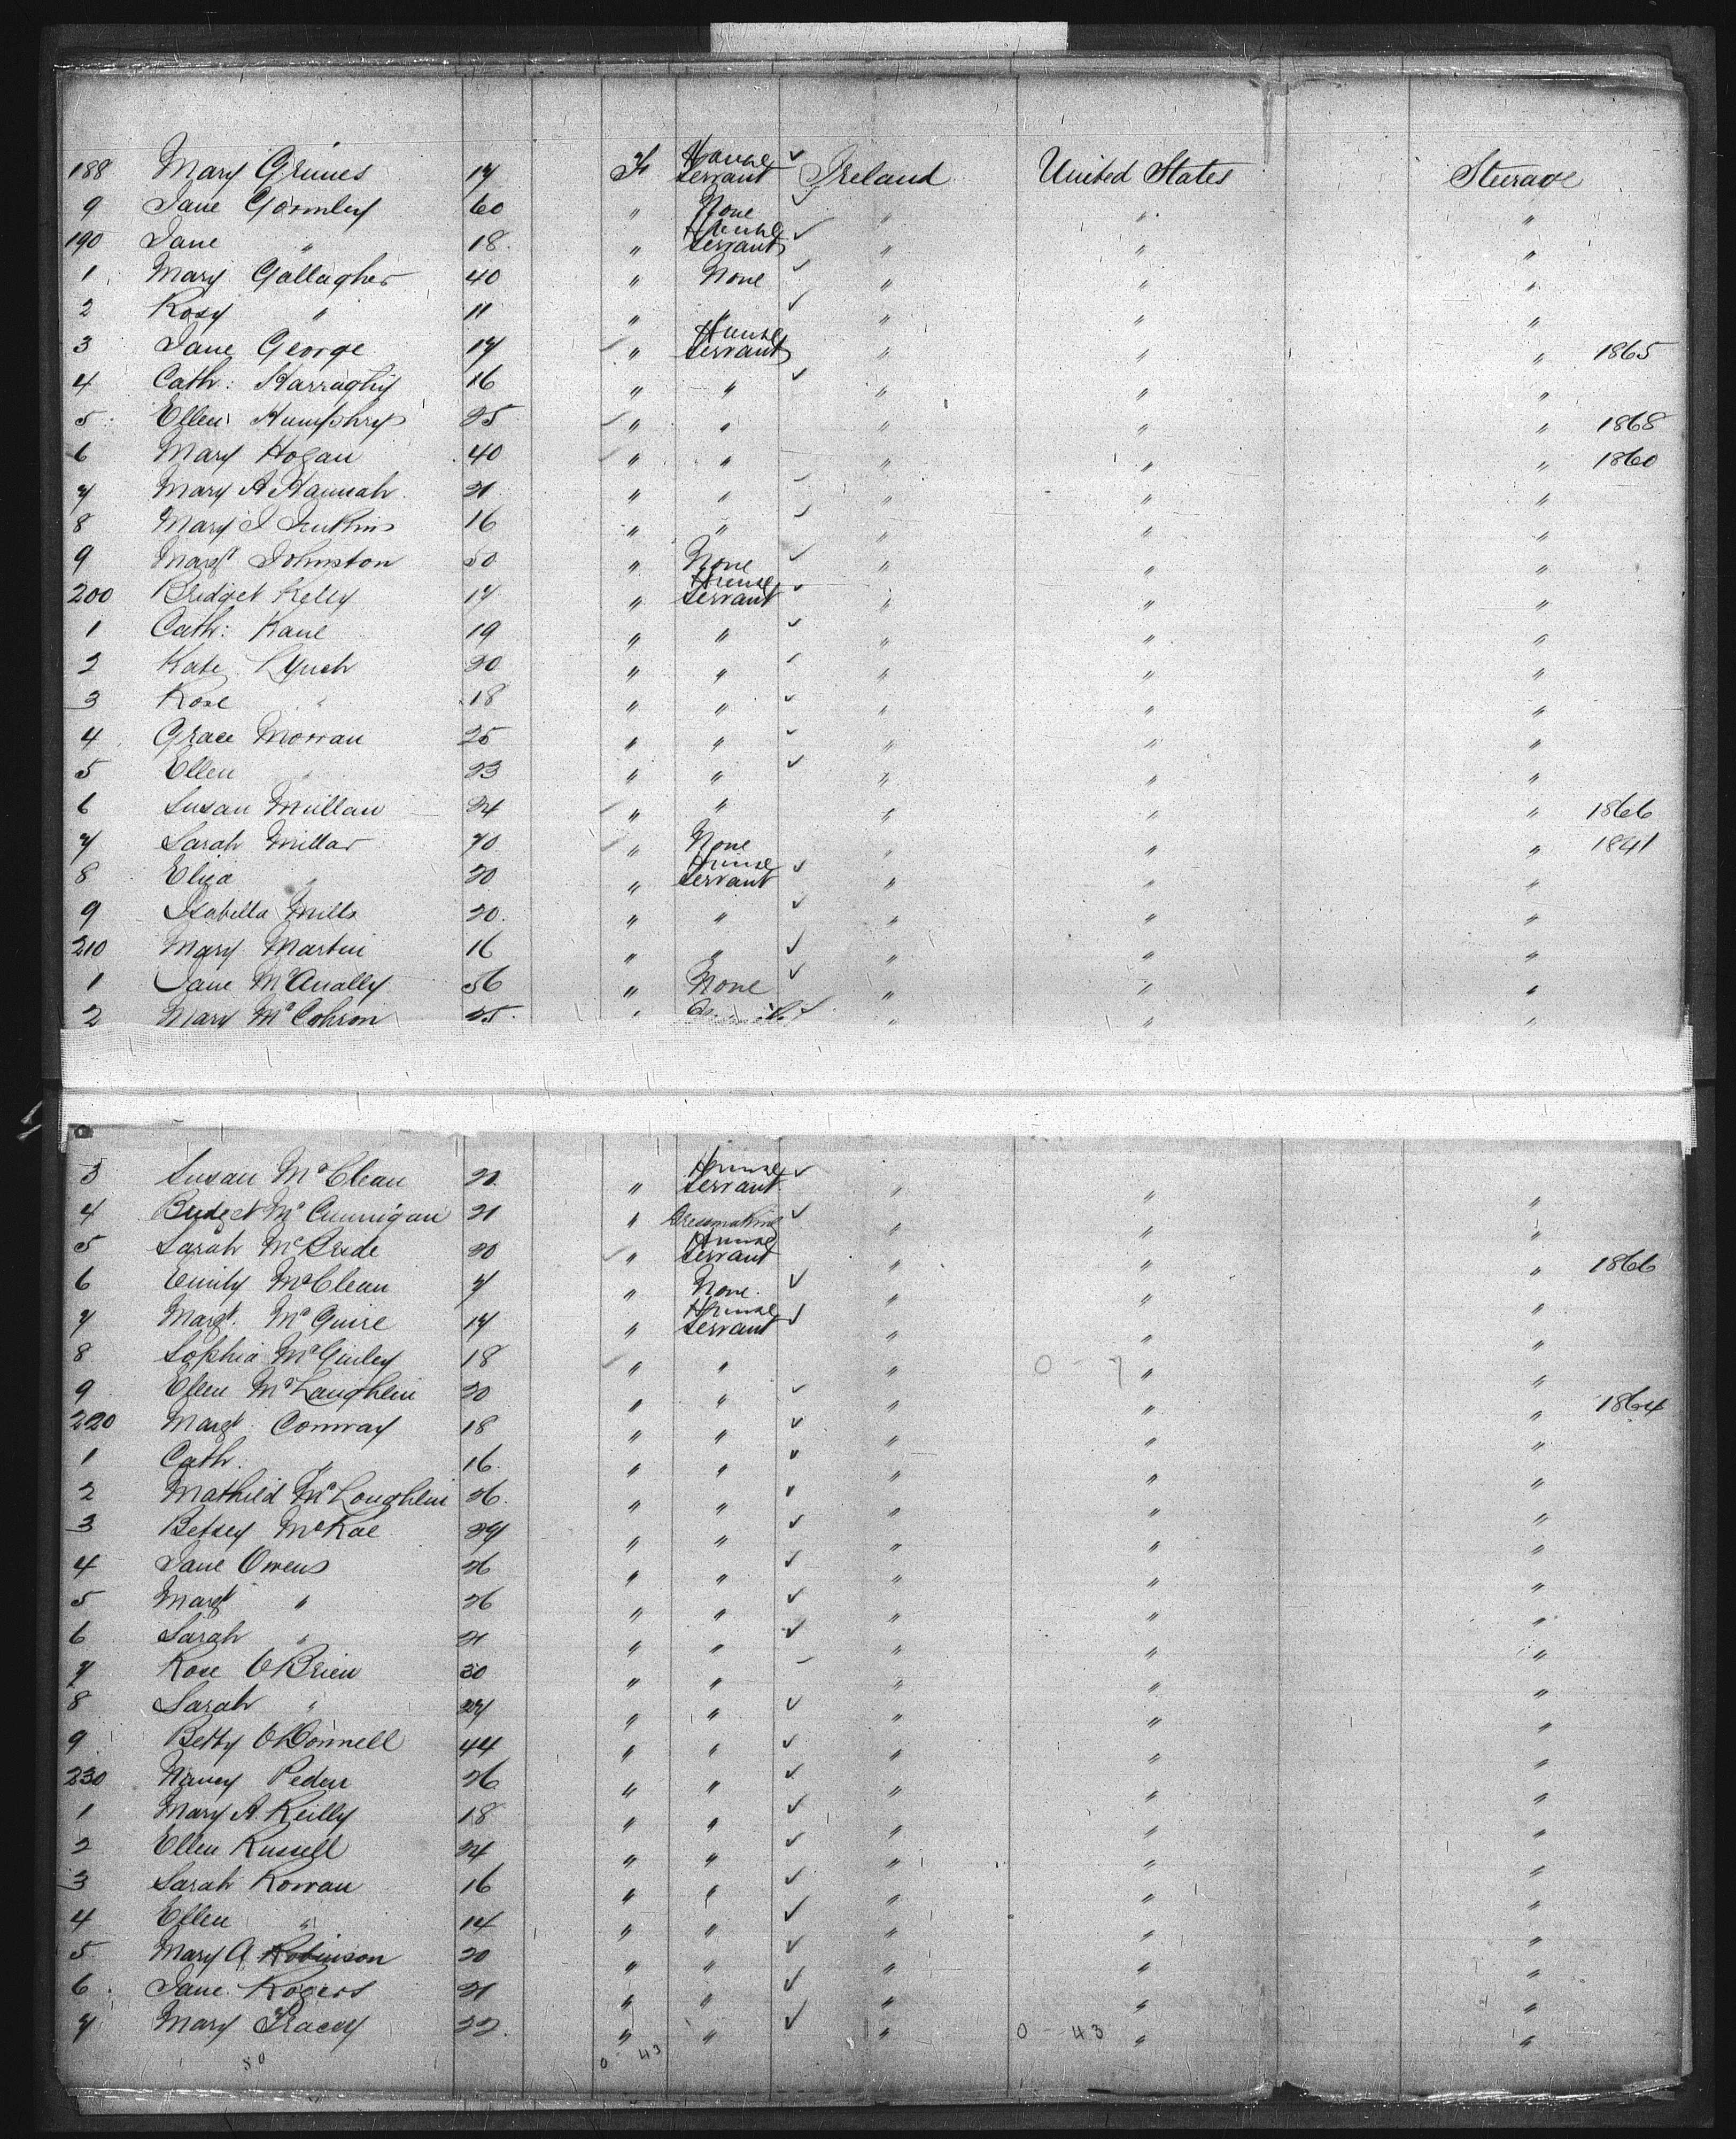 188 Mary Grimes 17 F House Servant ✓ Ireland United States Steerage
9 Jane Gormley 60 " None ✓ " " "
190 Jane " 18 " House Servant ✓ " " "
1 Mary Gallagher 40 " None ✓ " " "
2 Rosy " 11 " " ✓ " " "
3 Jane George 17 ✓ " House Servant " " " 1865
4 Cath: Harraghy 16 " " ✓ " " "
5 Ellen Humphrys 25 ✓ " " " " " 1868
6 Mary Hogan 40 ✓ " " " " " 1860
7 Mary A Hannah 21 " " " " "
8 Mary J Jenkins 16 " " ✓ " "
9 Margt Johnston 50 " None ✓ " " "
200 Bridget Kelly 17 " House Servant ✓ " " "
1 Cath: Kane 19 " " ✓ " " "
2 Kate Lynch 20 " " ✓ " " "
3 Rose " 18 " " ✓ " " "
4 Grace Morran 25 " " ✓ " " "
5 Ellen " 23 " " ✓ " " "
6 Susan Mullan 24 ✓ " " " " " 1866
7 Sarah Millar 70 ✓ " None " " " 1841
8 Eliza " 20 " House Servant ✓ " " "
9 Isabella Mills 20 " " ✓ " " "
210 Mary Martin 16 " " ✓ " " "
1 Jane McAnally 56 " None ✓ " " "
2 Mary McCohron 25 " ✓ " " "
3 Susan McClean 21 " House Servant ✓ " " "
4 Bridget McCunnigan 21 " Dressmaking ✓ " " "
5 Sarah McBride 20 ✓ " House Servant " " " 1866
6 Emily McClean 7 " None ✓ " " "
7 Margt. McGuire 17 " House Servant ✓ " " "
8 Sophia McGinley 18 ✓ " " " 0 - 7 " "
9 Ellen McLaughlin 20 " " ✓ " " " 1864
220 Margt. Conway 18 " " ✓ " " "
1 Cath. " 16 " " ✓ " " "
2 Mathild McLoughlin 26 " " ✓ " " "
3 Betsey McKae 27 " " ✓ " " "
4 Jane Owens 26 " " ✓ " " "
5 Margt " 26 " " ✓ " " "
6 Sarah " 21 " " ✓ " " "
7 Rose O'Brien 30 " " " " "
8 Sarah " 27 " " ✓ " " "
9 Betty O'Donnell 44 " " ✓ " " "
230 Nancy Peden 26 " " ✓ " " "
1 Mary A. Reilly 18 " " ✓ " " "
2 Ellen Russell 24 " " ✓ " " "
3 Sarah Rowan 16 " " ✓ " " "
4 Ellen " 14 " " ✓ " " "
5 Mary A Robinson 20 " " ✓ " " "
6 Jane Rogers 21 " " ✓ " " "
7 Mary Tracey 22 " " ✓ " 0 - 43 " "
50 0 - 43